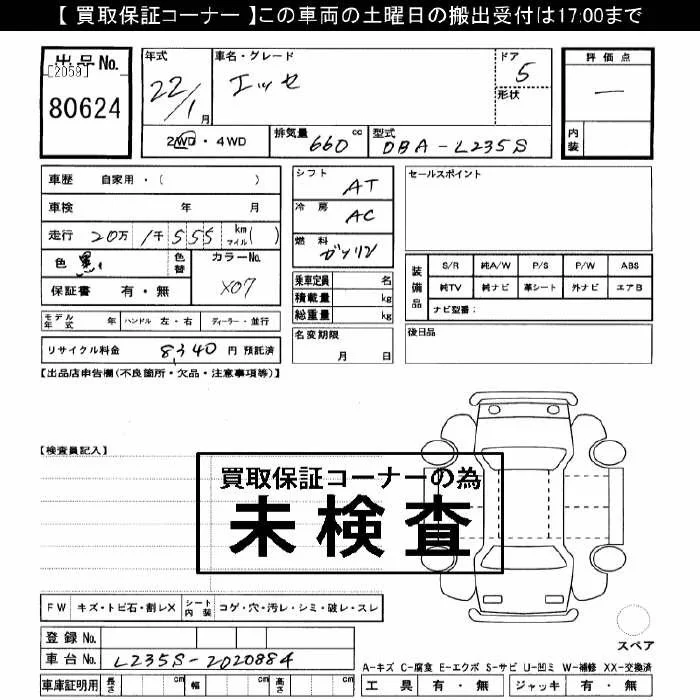 【 買取保証コーナー 】この車両の土曜日の搬出受付は17:00まで
出品No.
[2059]
80624
年式
22/1月
車名・グレード
エッセ
ドア
5
形状
2WD・4WD
排気量 660 cc
型式 DBA-L235S
評価点
—
内装
車歴 自家用・( )
車検 年 月
走行 20万 1千 555 km マイル( )
色 黒
色替
カラーNo.
X07
保証書 有・無
モデル年式 年
ハンドル 左・右
ディーラー・並行
リサイクル料金 8,340 円 預託済
シフト AT
冷房 AC
燃料 ガソリン
乗車定員 名
積載量 kg
総重量 kg
名変期限
月 日
セールスポイント
装備品
S/R 純A/W P/S P/W ABS
純TV 純ナビ 革シート 外ナビ エアB
ナビ型番：
後日品
【出品店申告欄(不良箇所・欠品・注意事項等)】
【検査員記入】
買取保証コーナーの為
未検査
FW キズ・トビ石・割レX シート内装 コゲ・穴・汚レ・シミ・破レ・スレ
スペア
登録No.
車台No. L235S-2020884
A-キズ C-腐食 E-エクボ S-サビ U-凹ミ W-補修 XX-交換済
車庫証明用 長さ cm 幅 cm 高さ cm
工具 有・無 ジャッキ 有・無